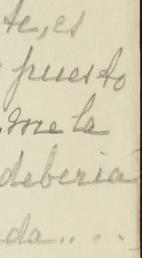 te, es
puesto
, me la
deberia
da....